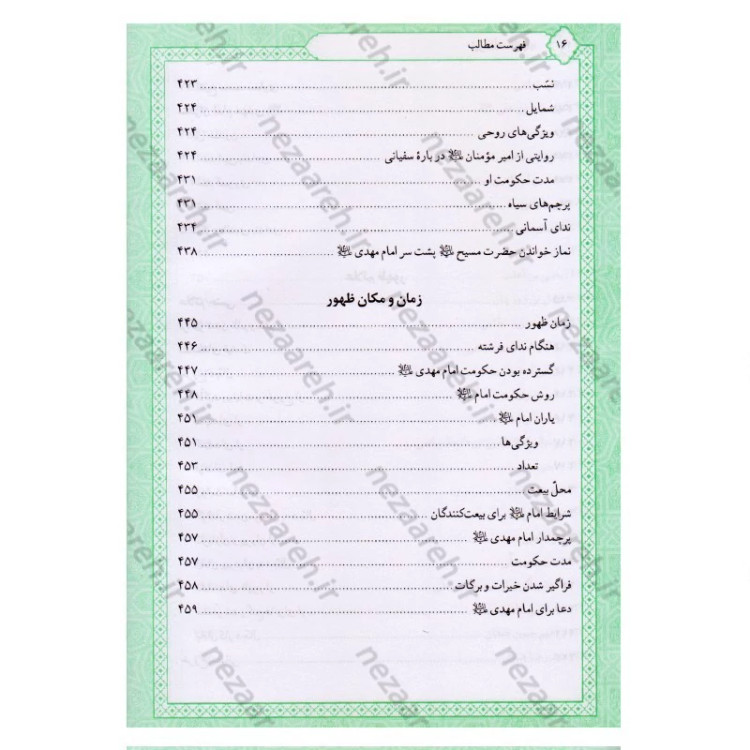 ۱۶
فهرست مطالب
نسَب ۴۲۳
شمایل ۴۲۴
ویژگی‌های روحی ۴۲۴
روایتی از امیر مؤمنان ﷺ در بارۀ سفیانی ۴۲۴
مدت حکومت او ۴۳۱
پرچم‌های سیاه ۴۳۱
ندای آسمانی ۴۳۴
نماز خواندن حضرت مسیح پشت سر امام مهدی ۴۳۸
زمان و مکان ظهور
زمان ظهور ۴۴۵
هنگام ندای فرشته ۴۴۶
گسترده بودن حکومت امام مهدی ۴۴۷
روش حکومت امام ۴۴۸
یاران امام ۴۵۱
ویژگی‌ها ۴۵۱
تعداد ۴۵۳
محلّ بیعت ۴۵۵
شرایط امام برای بیعت‌کنندگان ۴۵۵
پرچمدار امام مهدی ۴۵۷
مدت حکومت ۴۵۷
فراگیر شدن خیرات و برکات ۴۵۸
دعا برای امام مهدی ۴۵۹
nezaareh.ir